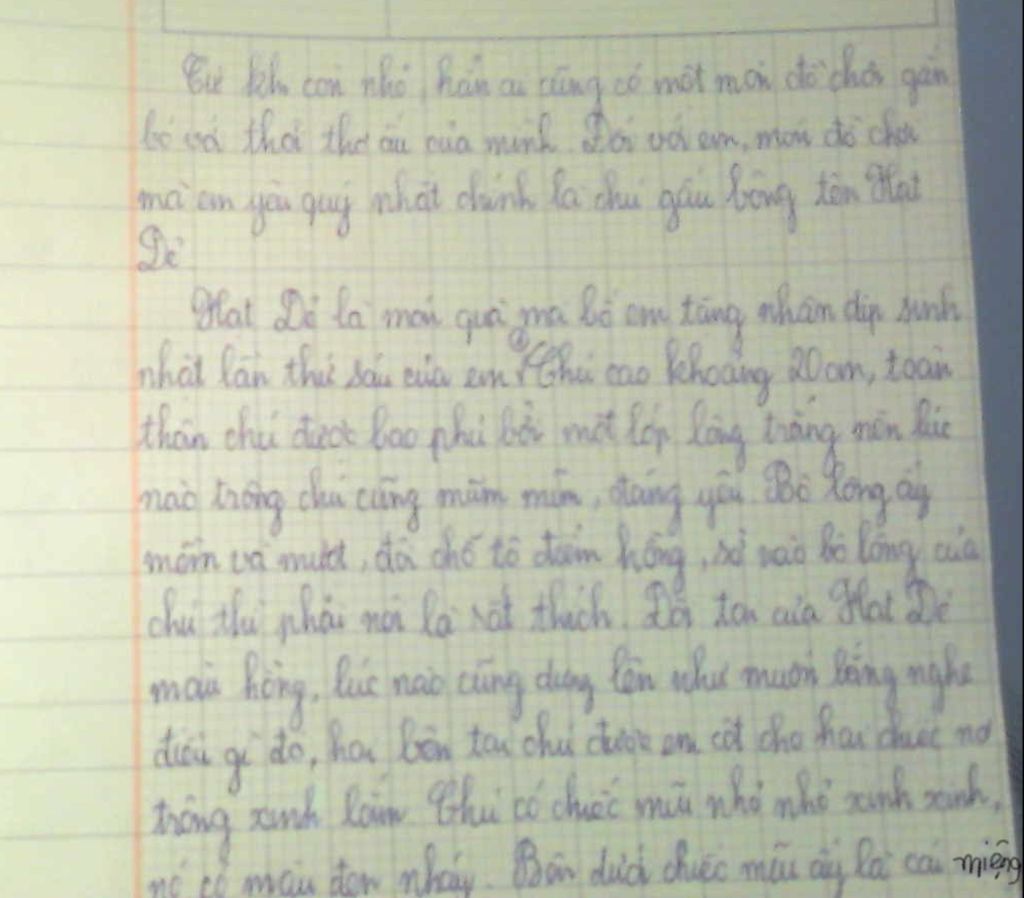 Từ khi còn nhỏ, hẳn ai cũng có một món đồ chơi gắn
bó với thời thơ ấu của mình. Đối với em, món đồ chơi
mà em yêu quý nhất chính là chú gấu bông tên Hạt
Dẻ
Hạt Dẻ là món quà mà bố em tặng nhân dịp sinh
nhật lần thứ sáu của em. Chú cao khoảng 20cm, toàn
thân chú được bao phủ bởi một lớp lông trắng nên lúc
nào trông chú cũng mũm mĩm, đáng yêu. Bộ lông ấy
mềm và mượt, đôi chỗ tô đốm hồng, sờ vào bộ lông của
chú thì phải nói là rất thích. Đôi tai của Hạt Dẻ
màu hồng, lúc nào cũng dựng lên như muốn lắng nghe
điều gì đó, hai bên tai chú được em cột cho hai chiếc nơ
trông xinh lắm. Chú có chiếc mũi nhỏ nhỏ xinh xinh,
nó có màu đen nháy. Bên dưới chiếc mũi ấy là cái miệng